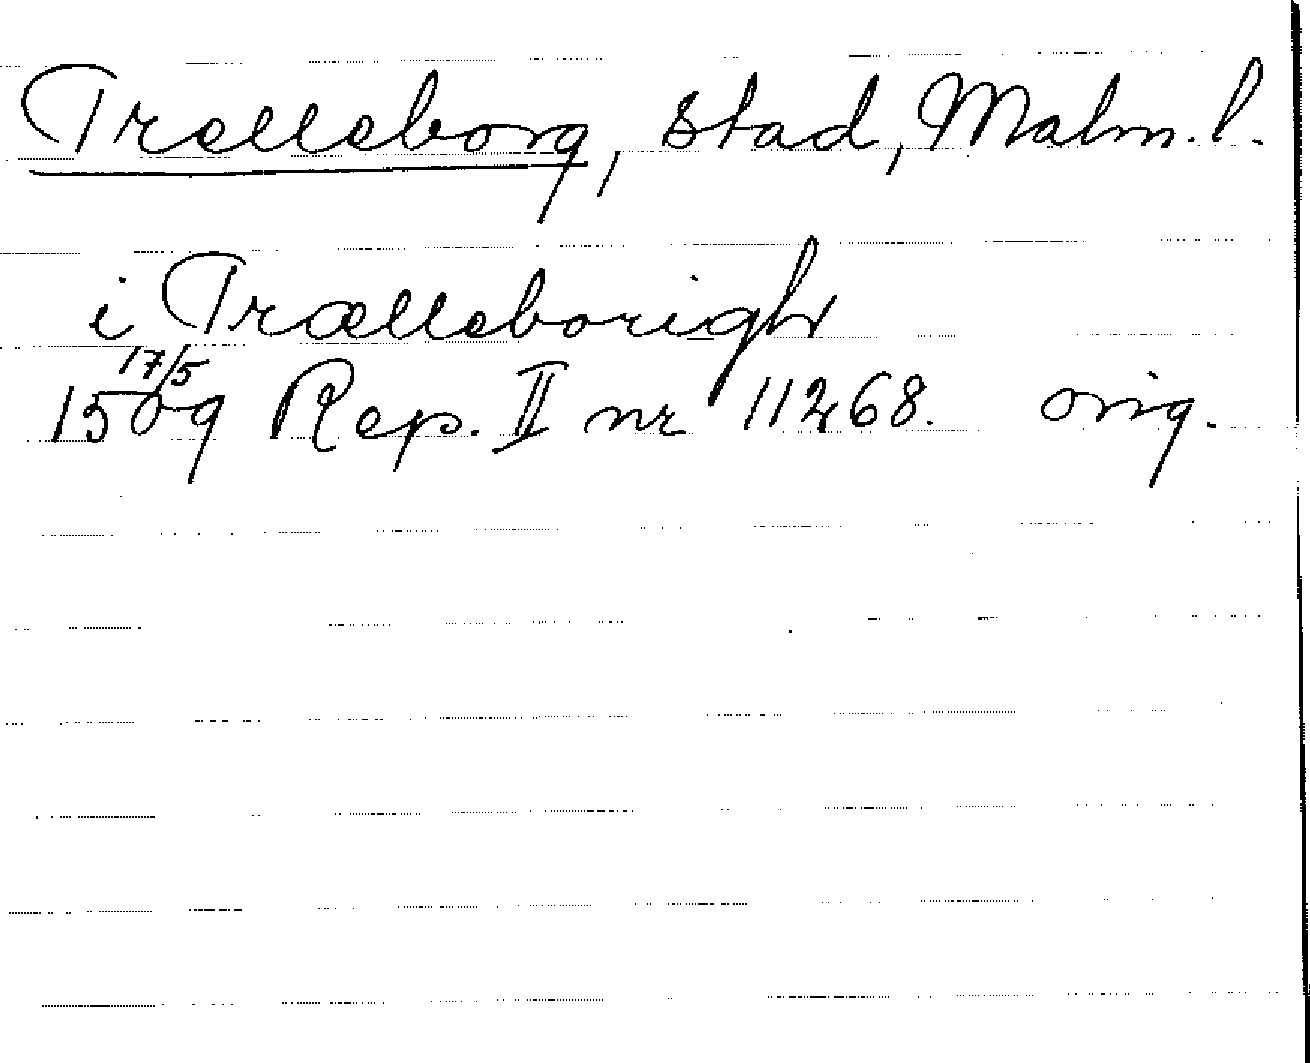 Trelleborg, stad, Malm. l.
i Trælleborigh
17/5
1509 Rep. II nr 11268. orig.